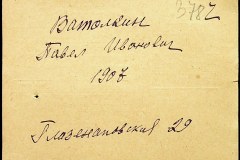 3782
Ватолкин
Павел Иванович
1907
Глазенаповская 29